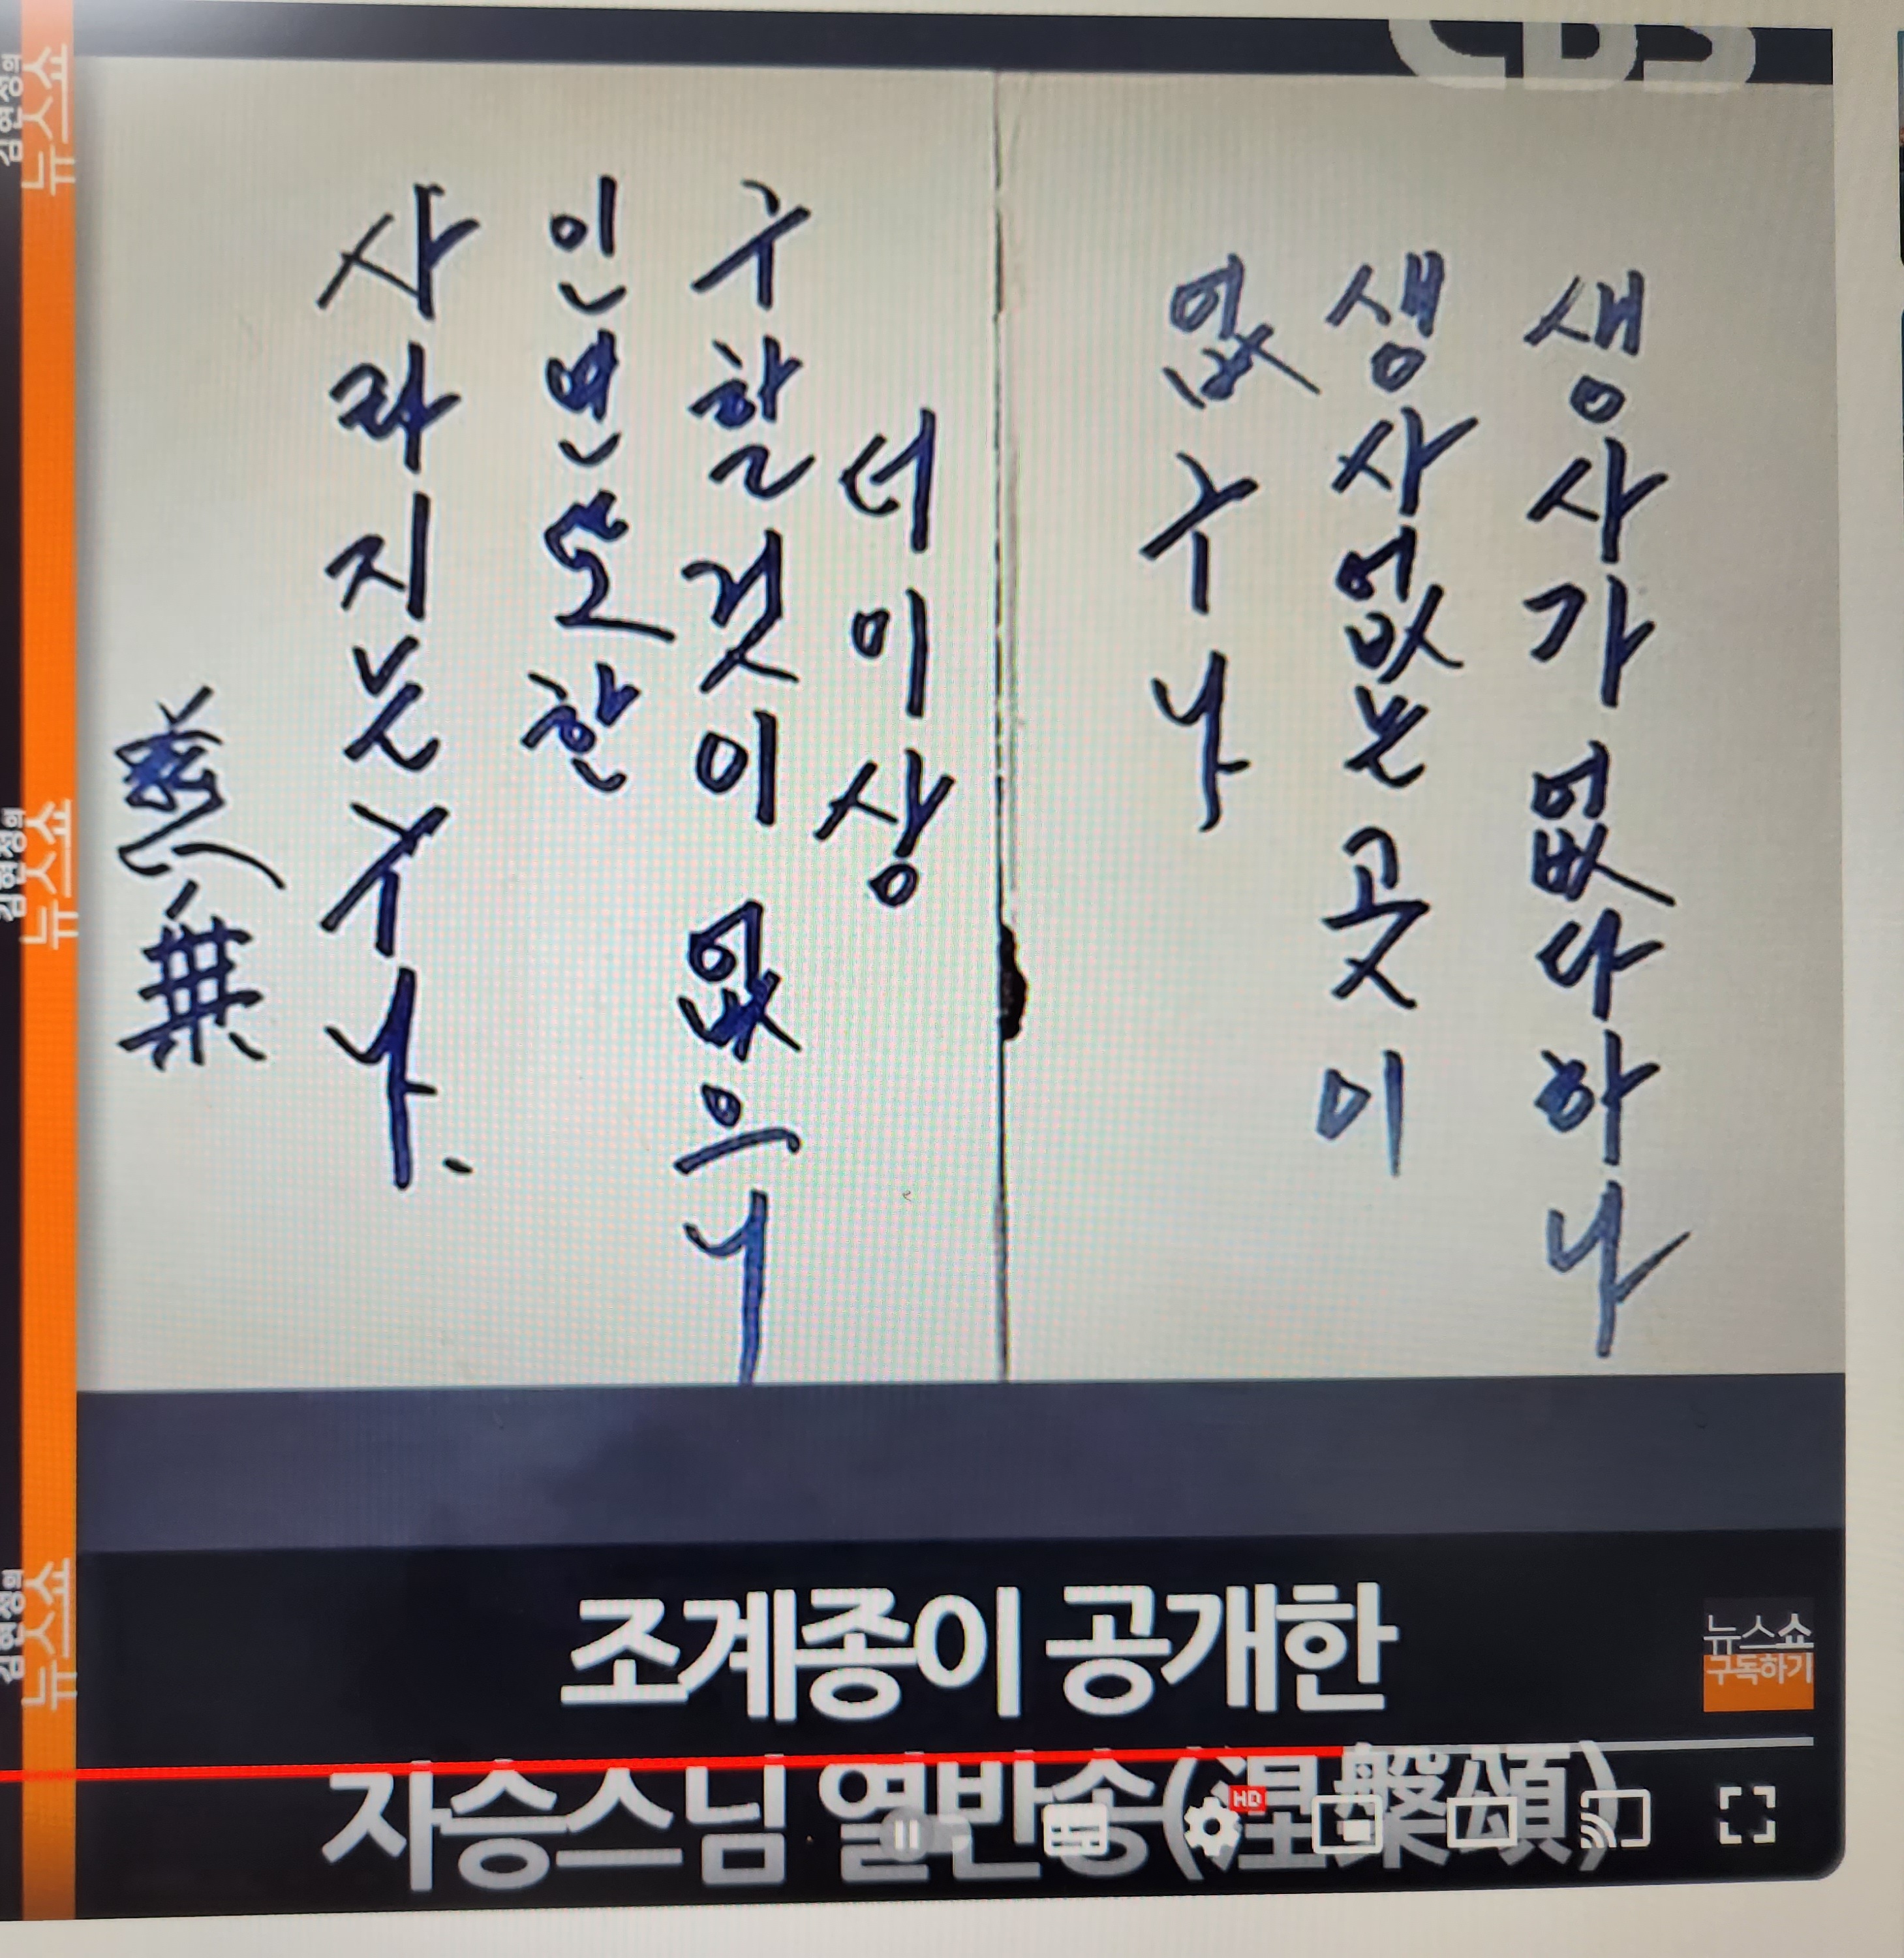 CBS
생사가 없다 하나
생사 없는 곳이
없구나
더 이상
구할 것이 없으니
인연 또한
사라지는구나.
無
조계종이 공개한
자승스님 열반송(涅槃頌)
뉴스쇼
구독하기
HD
김현정의
뉴스쇼
김현정의
뉴스쇼
김현정의
뉴스쇼